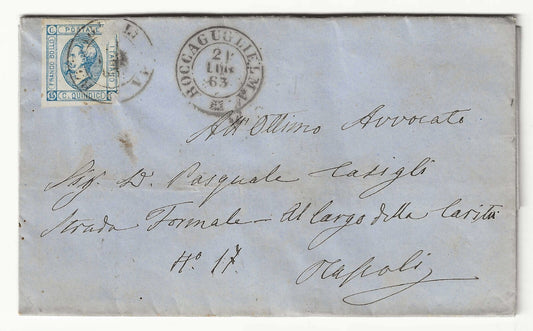 FRANCO BOLLO
POSTALE
C. QUINDICI
ROCCAGUGLIELMA
21
LUG
63
All'Ottimo Avvocato
Sig. D. Pasquale Casigli
Strada Formale - Al largo della Carità
N.º 17.
Napoli